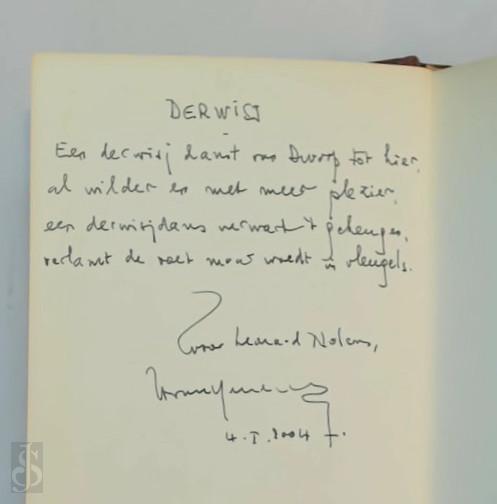 DERWISJ
Een derwisj danst van Dworp tot hier,
al wilder en met meer plezier,
een derwisjdans verwart 't geheugen,
de voet in vleugels.
voor Leonard Nolens,
4.I.2004